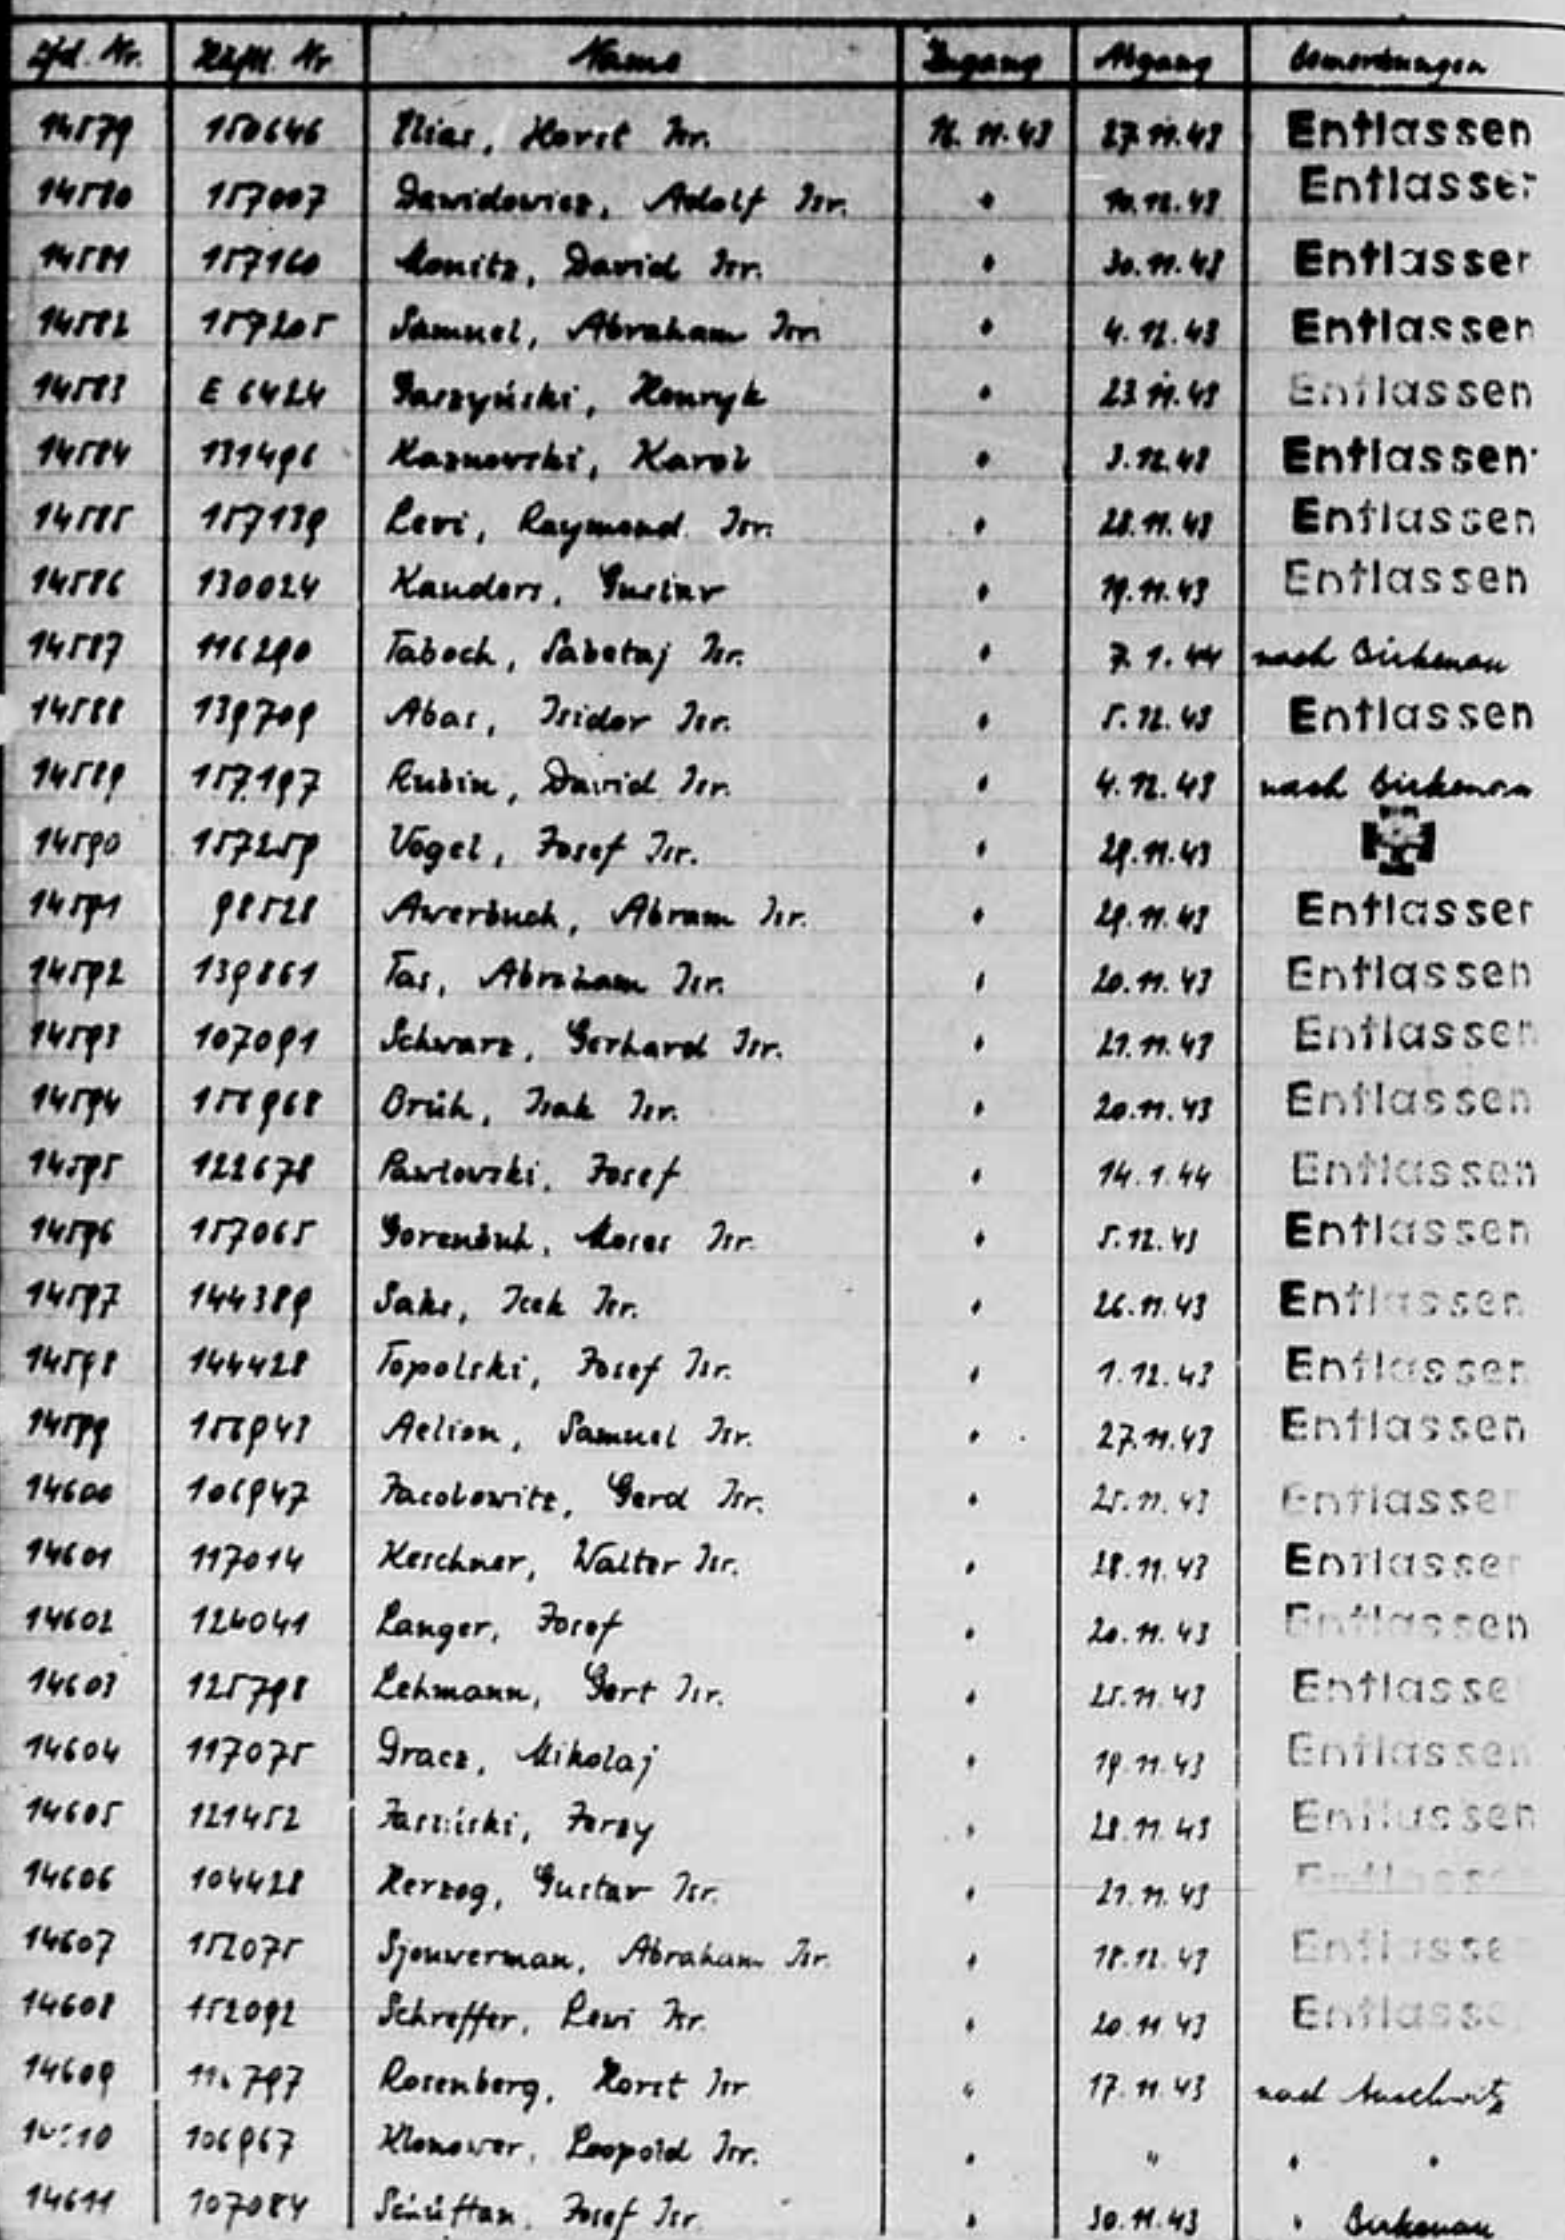 Lfd. Nr. Häftl. Nr Name Zugang Abgang Bemerkungen
14579 150646 Elias, Horst Isr. 16. 11. 43 27. 11. 43 Entlassen
14580 157007 Dawidowicz, Adolf Isr. " 10. 12. 43 Entlassen
14581 157160 Monitz, David Isr. " 30. 11. 43 Entlassen
14582 157205 Samuel, Abraham Isr. " 4. 12. 43 Entlassen
14583 E 6424 Gaszyński, Henryk " 23. 11. 43 Entlassen
14584 131496 Kasnowski, Karol " 3. 12. 43 Entlassen
14585 157139 Levi, Raymond Isr. " 28. 11. 43 Entlassen
14586 130024 Kanders, Gustav " 19. 11. 43 Entlassen
14587 116290 Taboch, Sabetaj Isr. " 7. 1. 44 nach Birkenau
14588 139709 Abas, Isidor Isr. " 5. 12. 43 Entlassen
14589 157197 Rubin, David Isr. " 4. 12. 43 nach Birkenau
14590 157259 Vogel, Josef Isr. " 29. 11. 43
14591 98528 Awerbuch, Abram Isr. " 29. 11. 43 Entlassen
14592 139861 Tas, Abraham Isr. " 20. 11. 43 Entlassen
14593 107091 Schwarz, Gerhard Isr. " 21. 11. 43 Entlassen
14594 156968 Brüh, Isak Isr. " 20. 11. 43 Entlassen
14595 122678 Pawlowski, Josef " 14. 1. 44 Entlassen
14596 157065 Gorenbuh, Moses Isr. " 5. 12. 43 Entlassen
14597 144389 Saks, Icek Isr. " 26. 11. 43 Entlassen
14598 144428 Topolski, Josef Isr. " 1. 12. 43 Entlassen
14599 156943 Aelion, Samuel Isr. " 27. 11. 43 Entlassen
14600 106947 Jacobowitz, Gerd Isr. " 25. 11. 43 Entlassen
14601 117014 Keschner, Walter Isr. " 28. 11. 43 Entlassen
14602 124041 Langer, Josef " 20. 11. 43 Entlassen
14603 125798 Lehmann, Gert Isr. " 25. 11. 43 Entlassen
14604 117075 Gracz, Mikolaj " 19. 11. 43 Entlassen
14605 121452 Jerzy " 28. 11. 43 Entlassen
14606 104428 Herzog, Gustav Isr. " 21. 11. 43 Entlassen
14607 152075 Sjouwerman, Abraham Isr. " 18. 12. 43 Entlassen
14608 152092 Schreffer, Levi Isr. " 20. 11. 43 Entlassen
14609 Rosenberg, Horst Isr " 17. 11. 43 nach Auschwitz
14610 106967 Klonower, Leopold Isr. " " " "
14611 107084 Schüftan, Josef Isr. " 30. 11. 43 " Birkenau